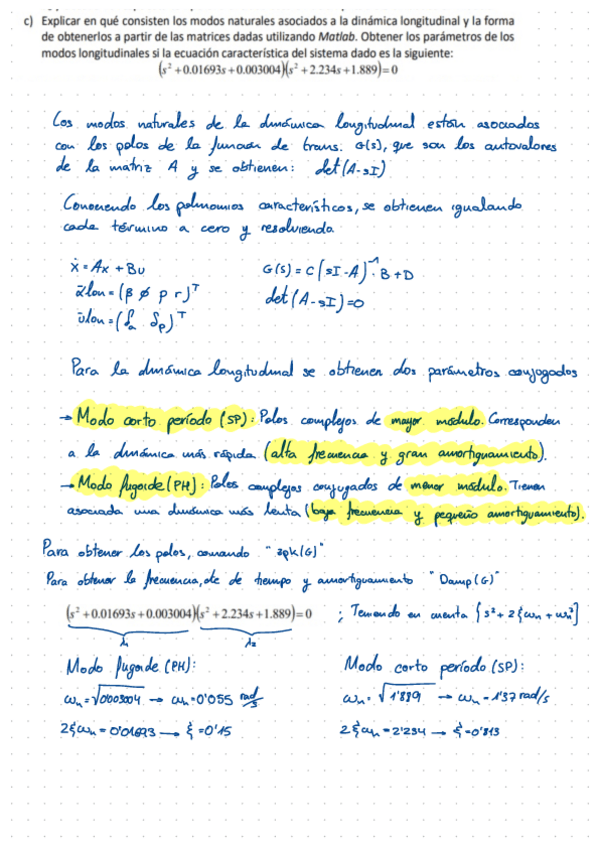 c) Explicar en qué consisten los modos naturales asociados a la dinámica longitudinal y la forma
de obtenerlos a partir de las matrices dadas utilizando Matlab. Obtener los parámetros de los
modos longitudinales si la ecuación característica del sistema dado es la siguiente:
(s² +0.01693s+0.003004)(s² +2.234s+1.889)=0
Los modos naturales de la dinámica longitudinal están asociados
con los polos de la funcion de trans. G(s), que son los autovalores
de la matriz A y se obtienen: det(A-sI)
Conociendo los polinomios característicos, se obtienen igualando
cada término a cero y resolviendo.
ẋ = Ax + Bu
G(s) = C(sI-A)⁻¹·B+D
x̄lon = (β ø p r)ᵀ
det(A-sI)=0
ūlon = (δₐ δₚ)ᵀ
Para la dinámica longitudinal se obtienen dos parámetros conjugados
→ Modo corto período (SP): Polos complejos de mayor módulo. Corresponden
a la dinámica más rápida (alta frecuencia y gran amortiguamiento).
→ Modo fugoide (PH): Polos complejos conjugados de menor módulo. Tienen
asociada una dinámica más lenta (baja frecuencia y pequeño amortiguamiento).
Para obtener los polos, comando "zpk(G)"
Para obtener la frecuencia, cte de tiempo y amortiguamiento "Damp(G)"
(s² +0.01693s+0.003004)(s² +2.234s+1.889)=0 ; Teniendo en cuenta [s²+2ξωn+ωn²]
λ₁ λ₂
Modo fugoide (PH):
Modo corto período (SP):
ωn = √0'003004 → ωn = 0'055 rad/s
ωn = √1'889 → ωn = 1'37 rad/s
2ξωn = 0'01693 → ξ = 0'15
2ξωn = 2'234 → ξ = 0'813